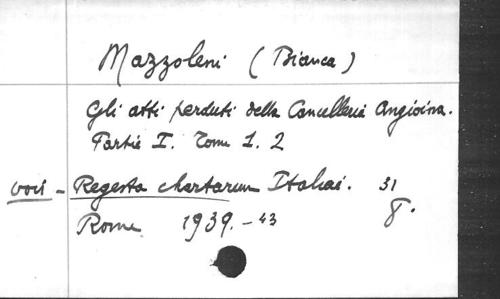 Mazzoleni (Bianca)
Gli atti perduti della Cancelleria Angioina.
Partie I. Tome 1. 2
voir - Regesta chartarum Italiae. 31
Rome 1939.-43 8°.